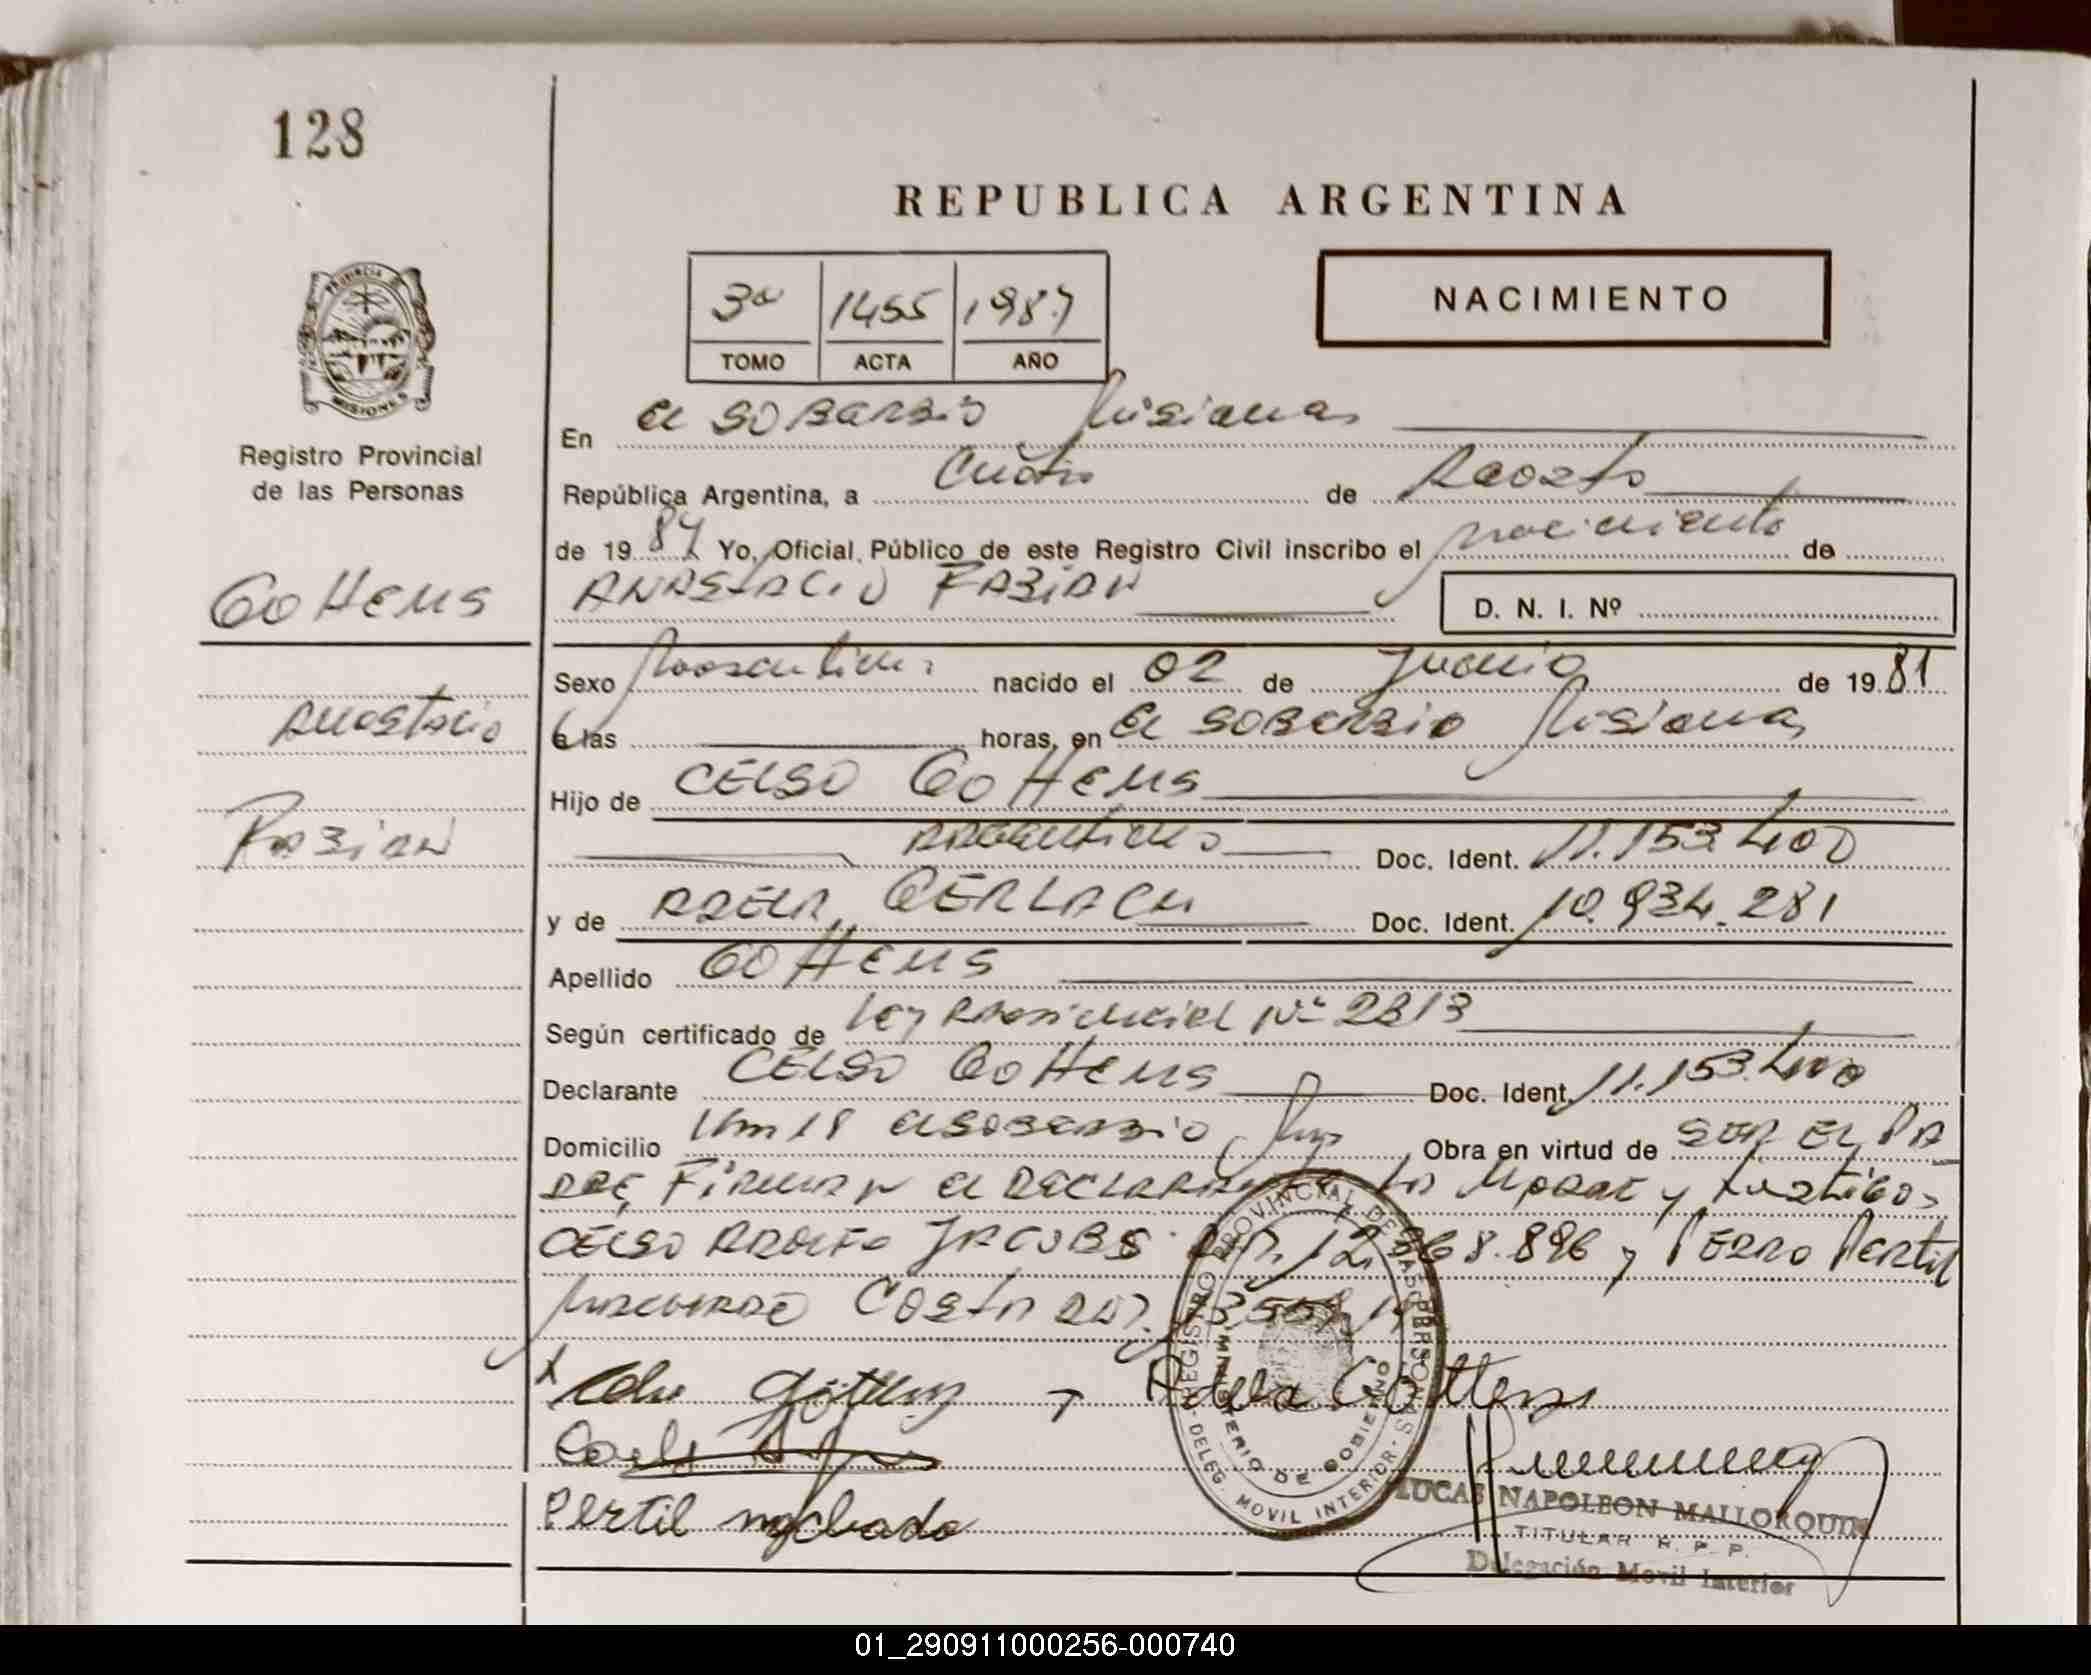 128
REPUBLICA ARGENTINA
3º 1455 1987
TOMO ACTA AÑO
NACIMIENTO
PROVINCIA DE
MISIONES
Registro Provincial
de las Personas
En El SOBERBIO Misiones
República Argentina, a Cuatro de Agosto
de 19 87 Yo, Oficial Público de este Registro Civil inscribo el nacimiento de
GOTTEMS
ANASTACIO FABIAN
D. N. I. Nº
Sexo Masculino nacido el 02 de Junio de 19 81
Anastacio
a las horas, en El SOBERBIO Misiones
Hijo de CELSO GOTTEMS
FABIAN
Argentino Doc. Ident. 11.153.400
y de ADELA GERLACH Doc. Ident. 10.934.281
Apellido GOTTEMS
Según certificado de Ley Provincial Nº 2313
Declarante CELSO GOTTEMS Doc. Ident. 11.153.400
Domicilio Km 18 El SOBERBIO Obra en virtud de SER EL PA
DRE FIRMAN el DECLARANTE LA MADRE y testigos
CELSO ADOLFO JACOBS 12. 68.896 y PEDRO Pertil
MACHADO COSTA
Celso Göttems y Adela Göttems
Pertil machado
REGISTRO PROVINCIAL DE LAS PERSONAS
MINISTERIO DE GOBIERNO
DELEG. MOVIL INTERIOR
LUCAS NAPOLEON MALLORQUIN
TITULAR R. P. P.
Delegación Movil Interior
01_290911000256-000740